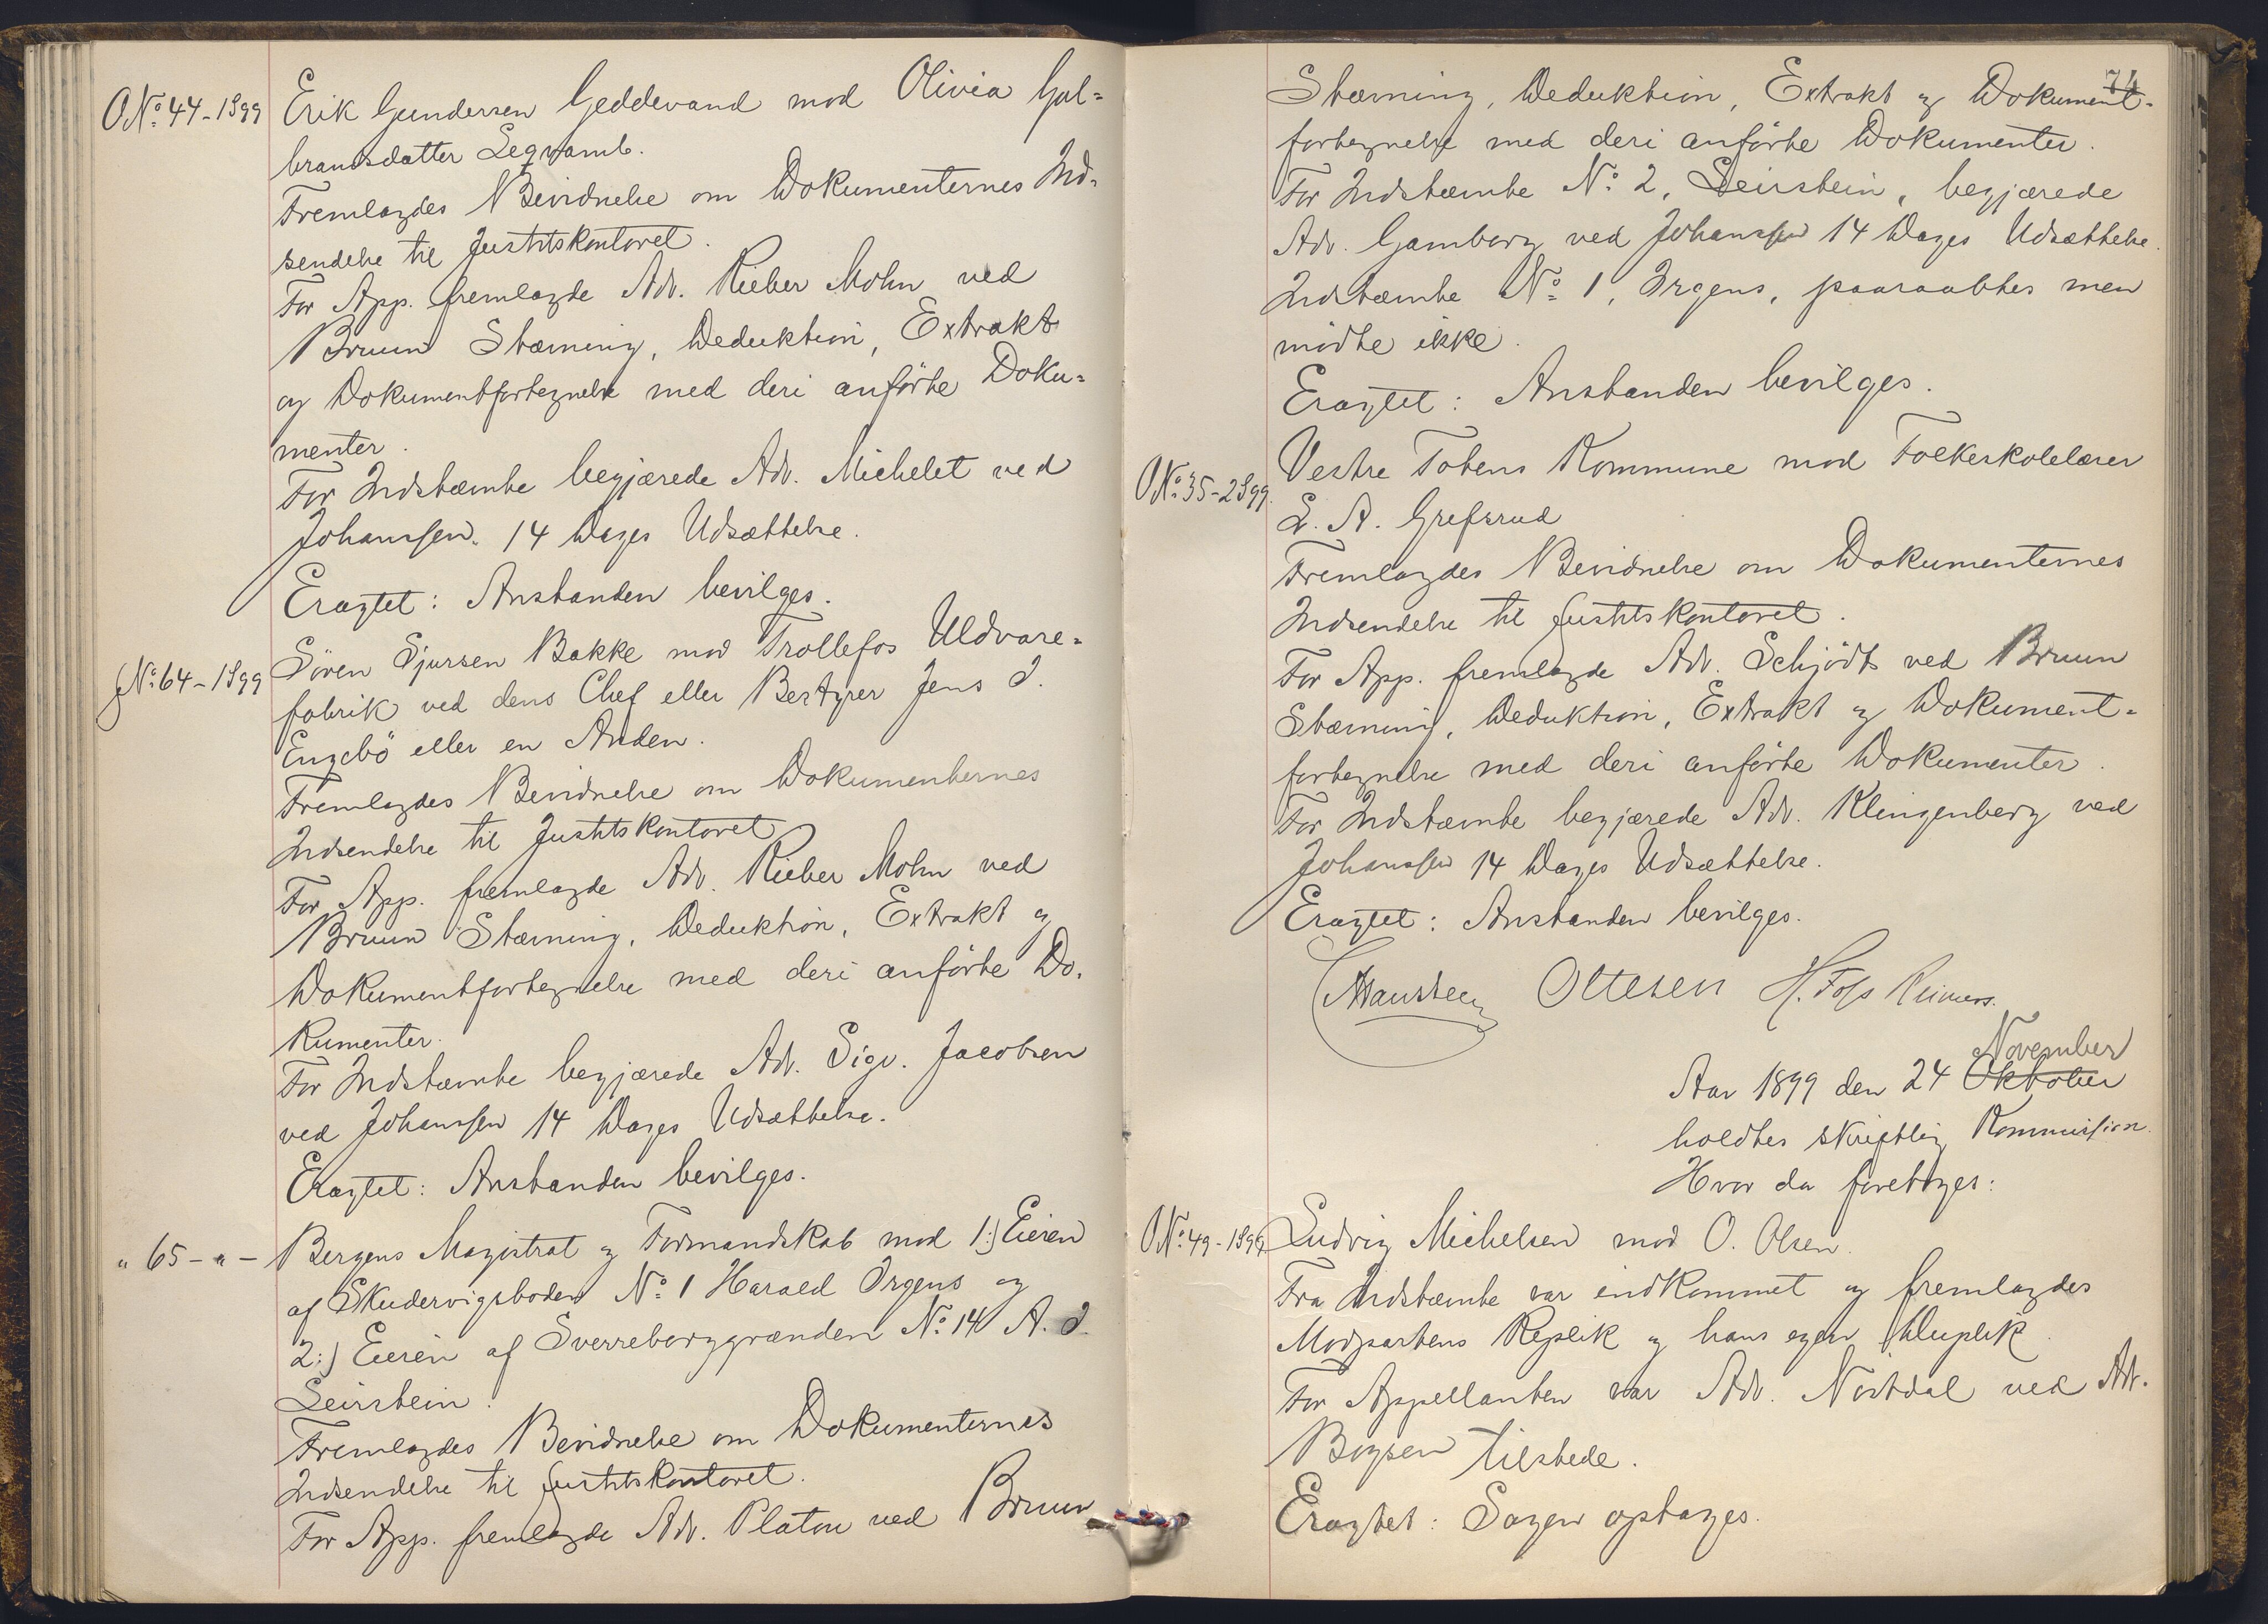 O No. 44-1899 Erik Gundersen Geddevand mod Olivia Gul=
brandsdatter Legvamb.
Fremlagdes Bevidnelse om Dokumenternes Ind=
sendelse til Justitskontoret.
For App. fremlagde Adv. Rieber Mohn ved
Bruun Stævning, Deduktion, Extrakt
og Dokumentfortegnelse med deri anførte Doku=
menter.
For Indstævnte begjærede Adv. Michelet ved
Johanssen 14 Dages Udsættelse.
Eragtet: Anstanden bevilges.
No. 64-1899 Sören Sjursen Bakke mod Trollefos Uldvare=
fabrik ved dens Chef eller Bestyrer Jens I.
Engebö eller en Anden.
Fremlagdes Bevidnelse om Dokumenternes
Indsendelse til Justitskontoret
For App. fremlagde Adv. Rieber Mohn ved
Bruun Stævning, Deduktion, Extrakt og
Dokumentfortegnelse med deri anførte Do=
kumenter.
For Indstævnte begjærede Adv. Sigv. Jacobsen
ved Johanssen 14 Dages Udsættelse.
Eragtet: Anstanden bevilges.
" 65-"- Bergens Magistrat og Formandskab mod 1:) Eieren
af Skudervigsboden No. 1 Harald Irgens og
2:) Eieren af Sverreborggrænden No. 14 A. I.
Seirstein.
Fremlagdes Bevidnelse om Dokumenternes
Indsendelse til Justitskontoret.
For App. fremlagde Adv. Platou ved Bruun
74
Stævning, Deduktion, Extrakt og Dokument=
fortegnelse med deri anførte Dokumenter.
For Indstævnte No. 2, Seirstein, begjærede
Adv. Gamborg ved Johanssen 14 Dages Udsættelse.
Indstævnte No. 1, Irgens, paaraabtes men
mödte ikke.
Eragtet: Anstanden bevilges.
O No. 35-2899. Vestre Totens Kommune mod Folkeskolelærer
L. A. Grefsrud
Fremlagdes Bevidnelse om Dokumenternes
Indsendelse til Justitskontoret.
For App. fremlagde Adv. Schjödt ved Bruun
Stævning, Deduktion, Extrakt og Dokument=
fortegnelse med deri anførte Dokumenter.
For Indstævnte begjærede Adv. Klingenberg ved
Johanssen 14 Dages Udsættelse.
Eragtet: Anstanden bevilges.
Ottesen H. Foss Reimers.
November
Aar 1899 den 24 Oktober
holdtes skriftlig Kommission.
Hvor da foretoges:
O No. 49-1899 Ludvig Michelsen mod O. Olsen.
Fra Indstævnte var indkommet og fremlagdes
Modpartens Replik og hans egen Duplik.
For Appellanten var Adv. Nöstdal ved Adv.
Boysen tilstede.
Eragtet: Sagen optages.